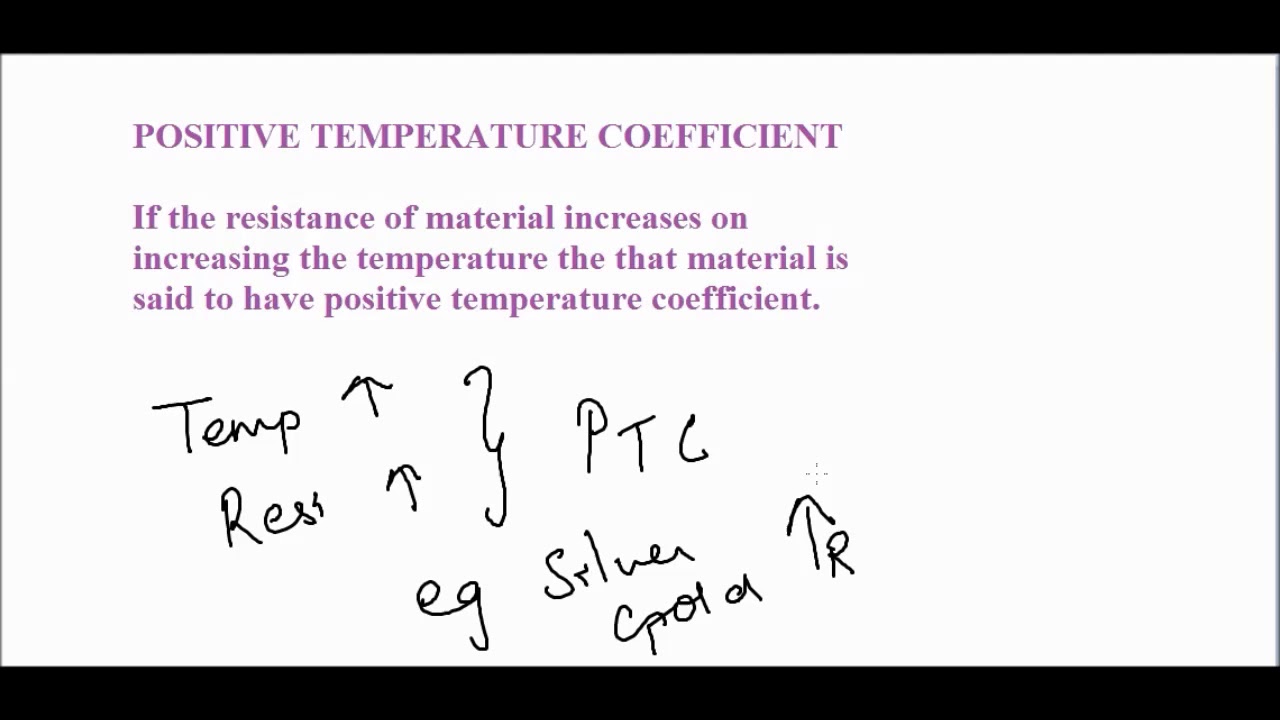 POSITIVE TEMPERATURE COEFFICIENT
If the resistance of material increases on
increasing the temperature the that material is
said to have positive temperature coefficient.
Temp ↑ } PTC
Res ↑
eg Silver ↑R
Gold